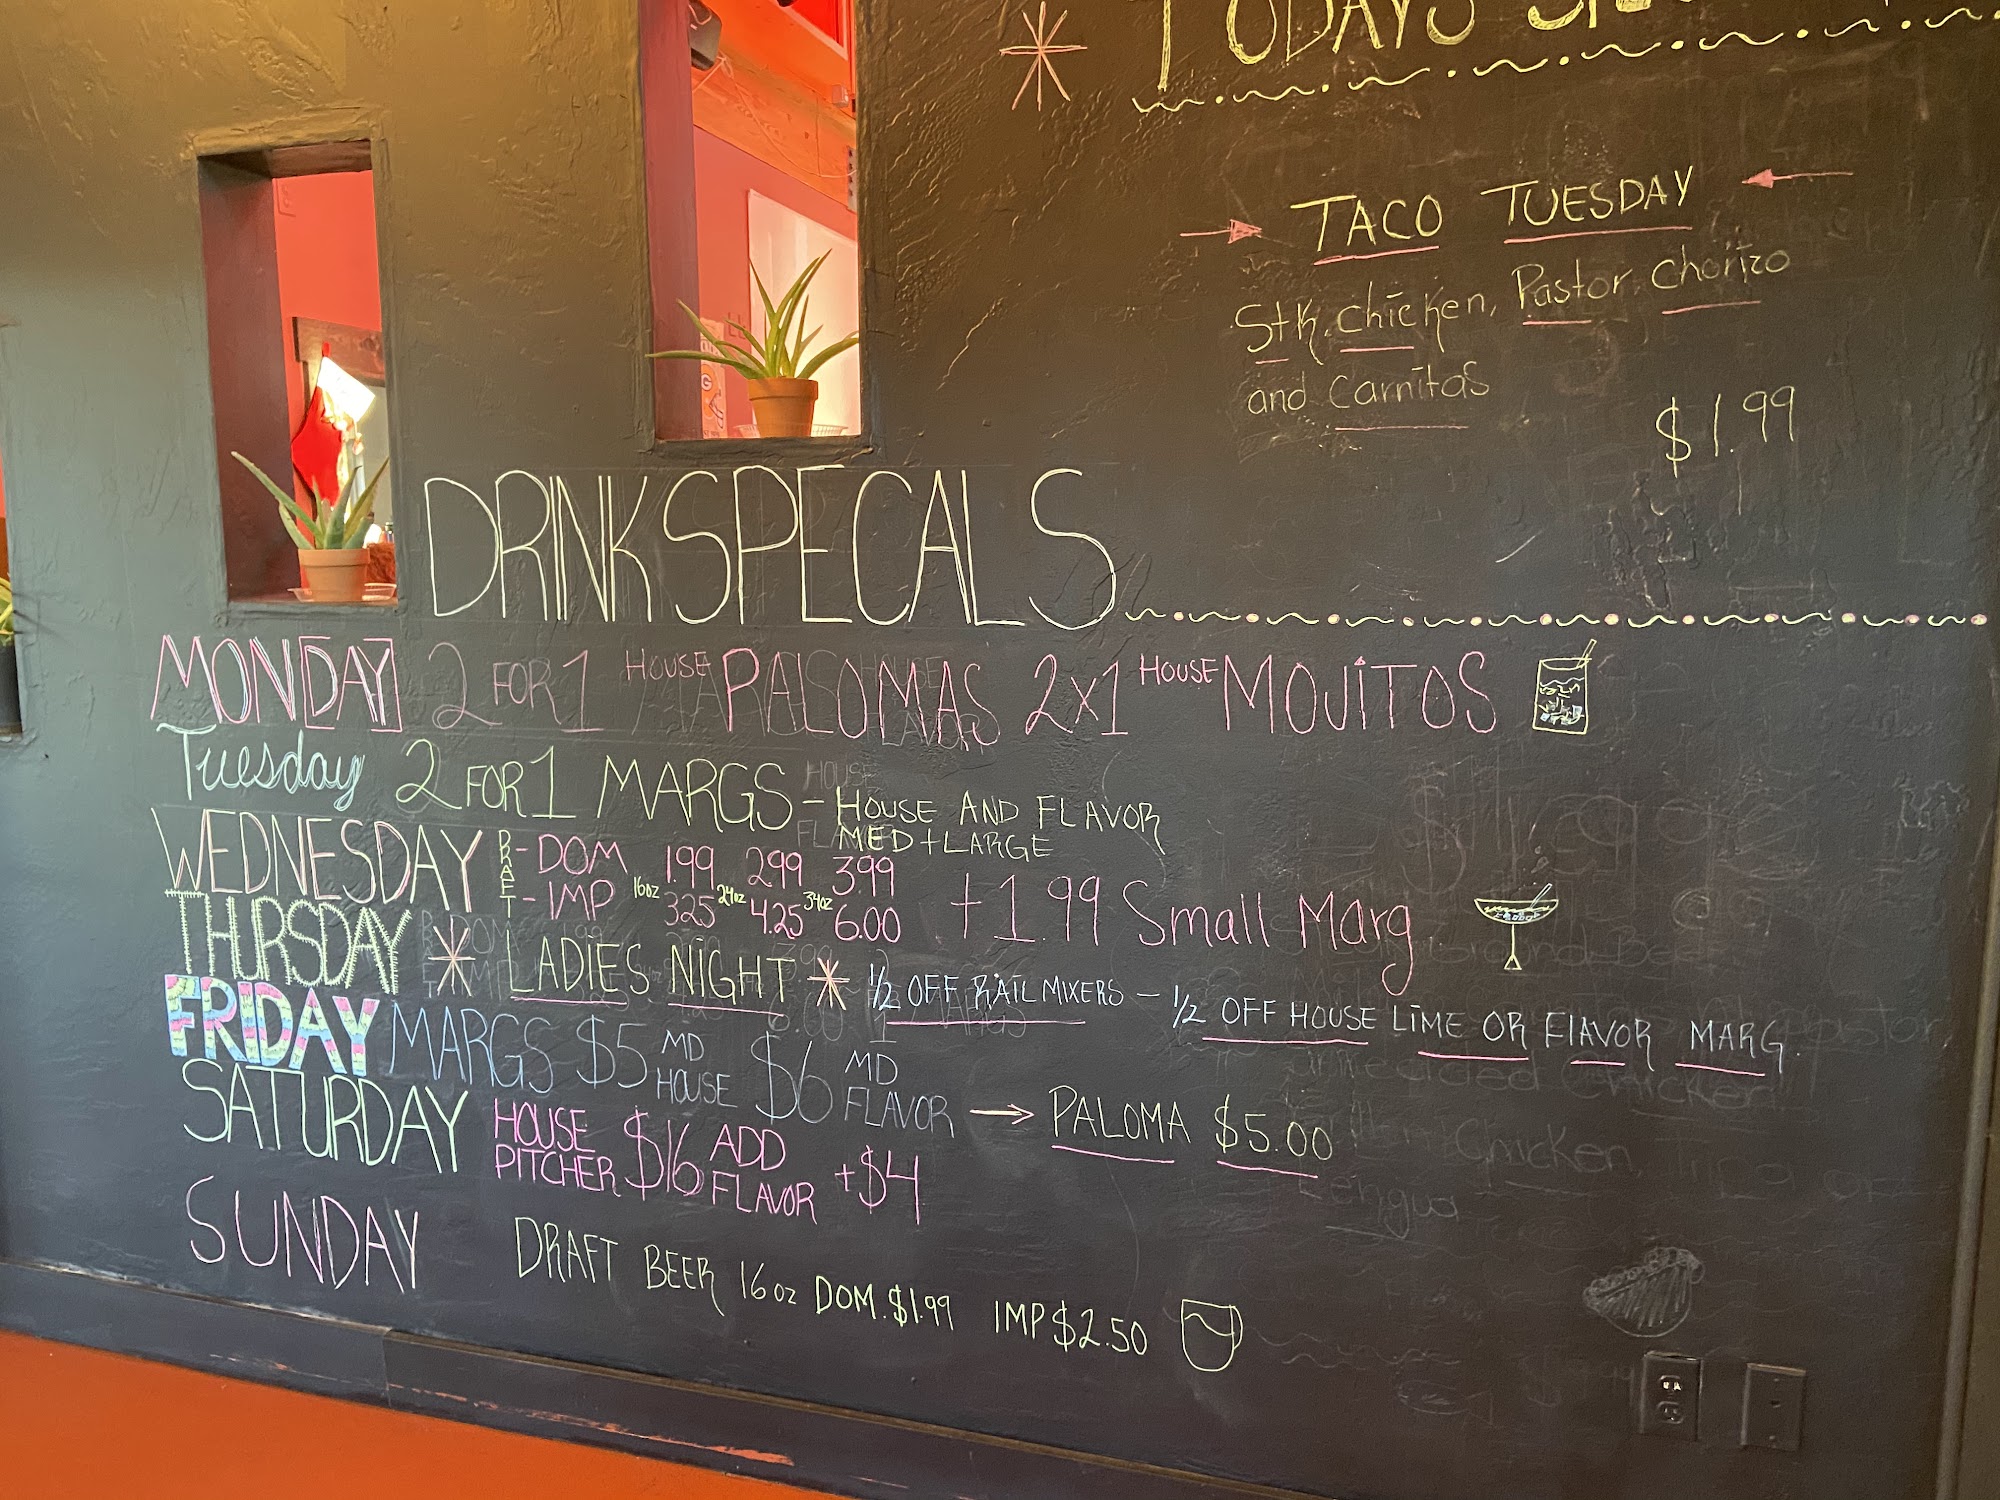 TODAYS
TACO TUESDAY
Stk, chicken, Pastor, Chorizo
and Carnitas
$1.99
DRINK SPECALS
MONDAY 2 FOR 1 HOUSE PALOMAS 2x1 HOUSE MOJITOS
Tuesday 2 FOR 1 MARGS - HOUSE AND FLAVOR
MED + LARGE
WEDNESDAY DRAFT - DOM 1.99 2.99 3.99
- IMP 16oz 3.25 24oz 4.25 34oz 6.00 +1.99 Small Marg
THURSDAY LADIES NIGHT 1/2 OFF RAIL MIXERS - 1/2 OFF HOUSE LIME OR FlAVOR MARG.
FRIDAY MARGS $5 MD HOUSE $6 MD FLAVOR → PALOMA $5.00
SATURDAY HOUSE PITCHER $16 ADD FLAVOR +$4
SUNDAY DRAFT BEER 16oz DOM. $1.99 IMP $2.50